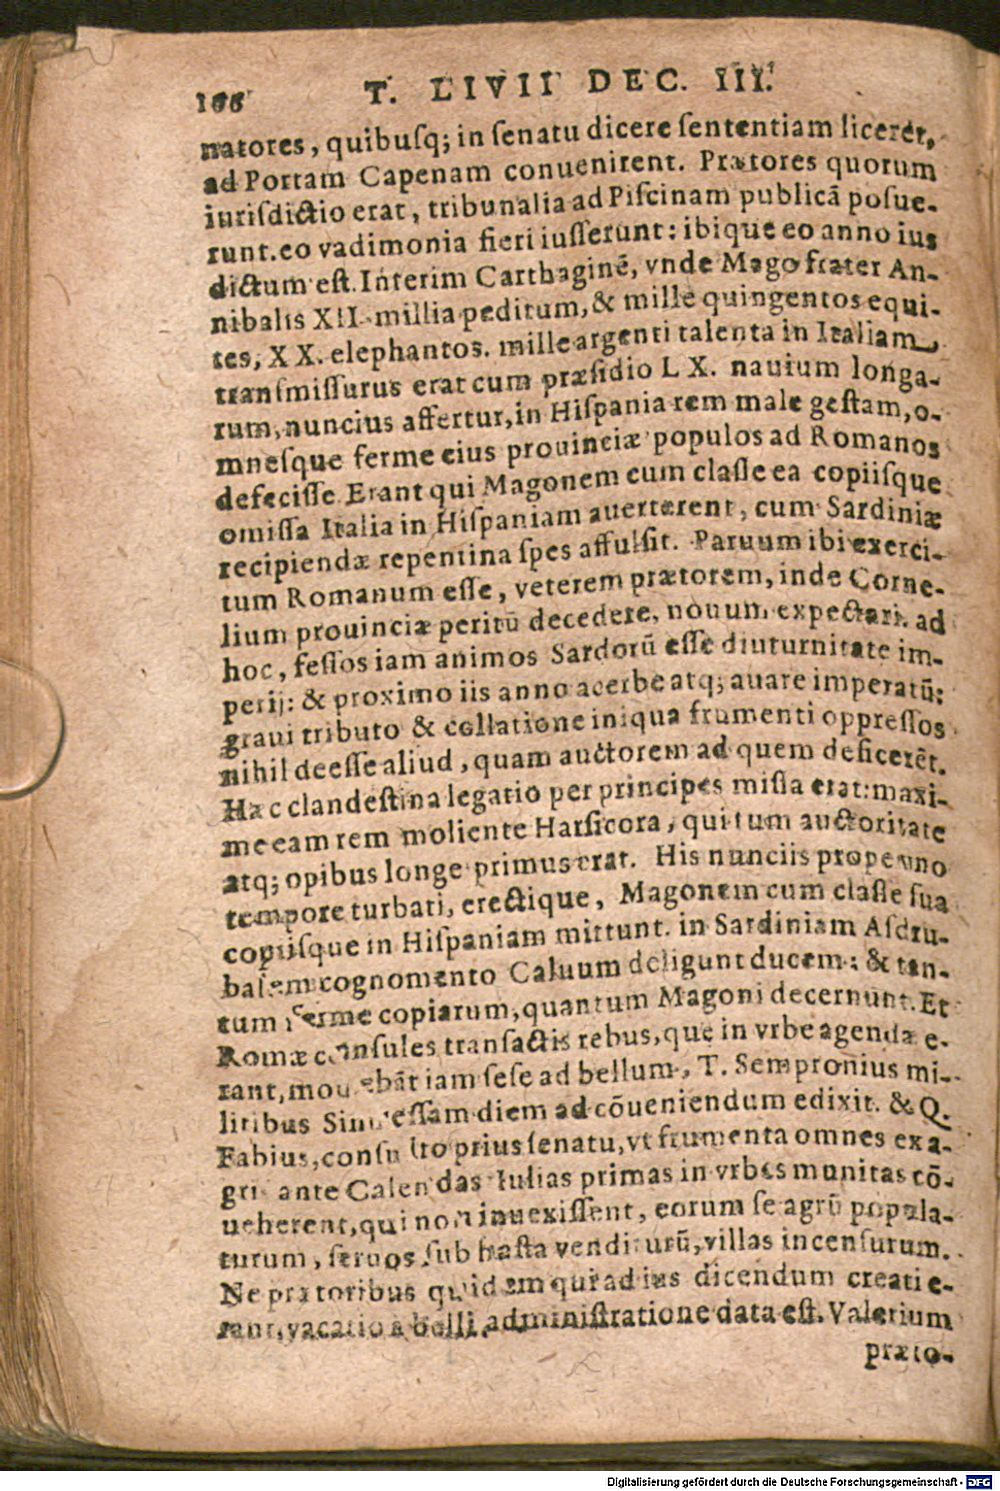 166 T. LIVII DEC. III.
natores, quibusq; in senatu dicere sententiam licerét,
ad Portam Capenam conuenirent. Prætores quorum
iurisdictio erat, tribunalia ad Piscinam publicã posue-
runt. eo vadimonia fieri iusserunt: ibique eo anno ius
dictum est. Interim Carthaginẽ, vnde Mago frater An-
nibalis XII. millia peditum, & mille quingentos equi-
tes, XX. elephantos. mille argenti talenta in Italiam
transmissurus erat cum præsidio LX. nauium longa-
rum, nuncius affertur, in Hispania rem male gestam, o-
mnesque ferme eius prouinciæ populos ad Romanos
defecisse. Erant qui Magonem cum classe ea copiisque
omissa Italia in Hispaniam auerterent, cum Sardiniæ
recipiendæ repentina spes affulsit. Paruum ibi exerci-
tum Romanum esse, veterem prætorem, inde Corne-
lium prouinciæ peritũ decedere, nouum expectari. ad
hoc, fessos iam animos Sardorũ esse diuturnitate im-
perij: & proximo iis anno acerbe atq; auare imperatũ:
graui tributo & collatione iniqua frumenti oppressos
nihil deesse aliud, quam auctorem ad quem deficerẽt.
Hæc clandestina legatio per principes missa erat: maxi-
me eam rem moliente Harsicora, qui tum auctoritate
atq; opibus longe primus erat. His nunciis prope vno
tempore turbati, erectique, Magonem cum classe sua
copiisque in Hispaniam mittunt. in Sardiniam Asdru-
balem cognomento Caluum deligunt ducem: & tan-
tum ferme copiarum, quantum Magoni decernunt. Et
Romæ consules transactis rebus, que in vrbe agendæ e-
rant, mouebãt iam sese ad bellum, T. Sempronius mi-
litibus Sinuessam diem ad cõueniendum edixit. & Q.
Fabius, consulto prius senatu, vt frumenta omnes exa-
gris ante Calendas Iulias primas in vrbes munitas cõ-
ueherent, qui non inuexissent, eorum se agrũ popula-
turum, seruos sub hasta venditurũ, villas incensurum.
Ne prætoribus quidem qui ad ius dicendum creati e-
rant, vacatio a belli administratione data est. Valerium
præto-
Digitalisierung gefördert durch die Deutsche Forschungsgemeinschaft - DFG